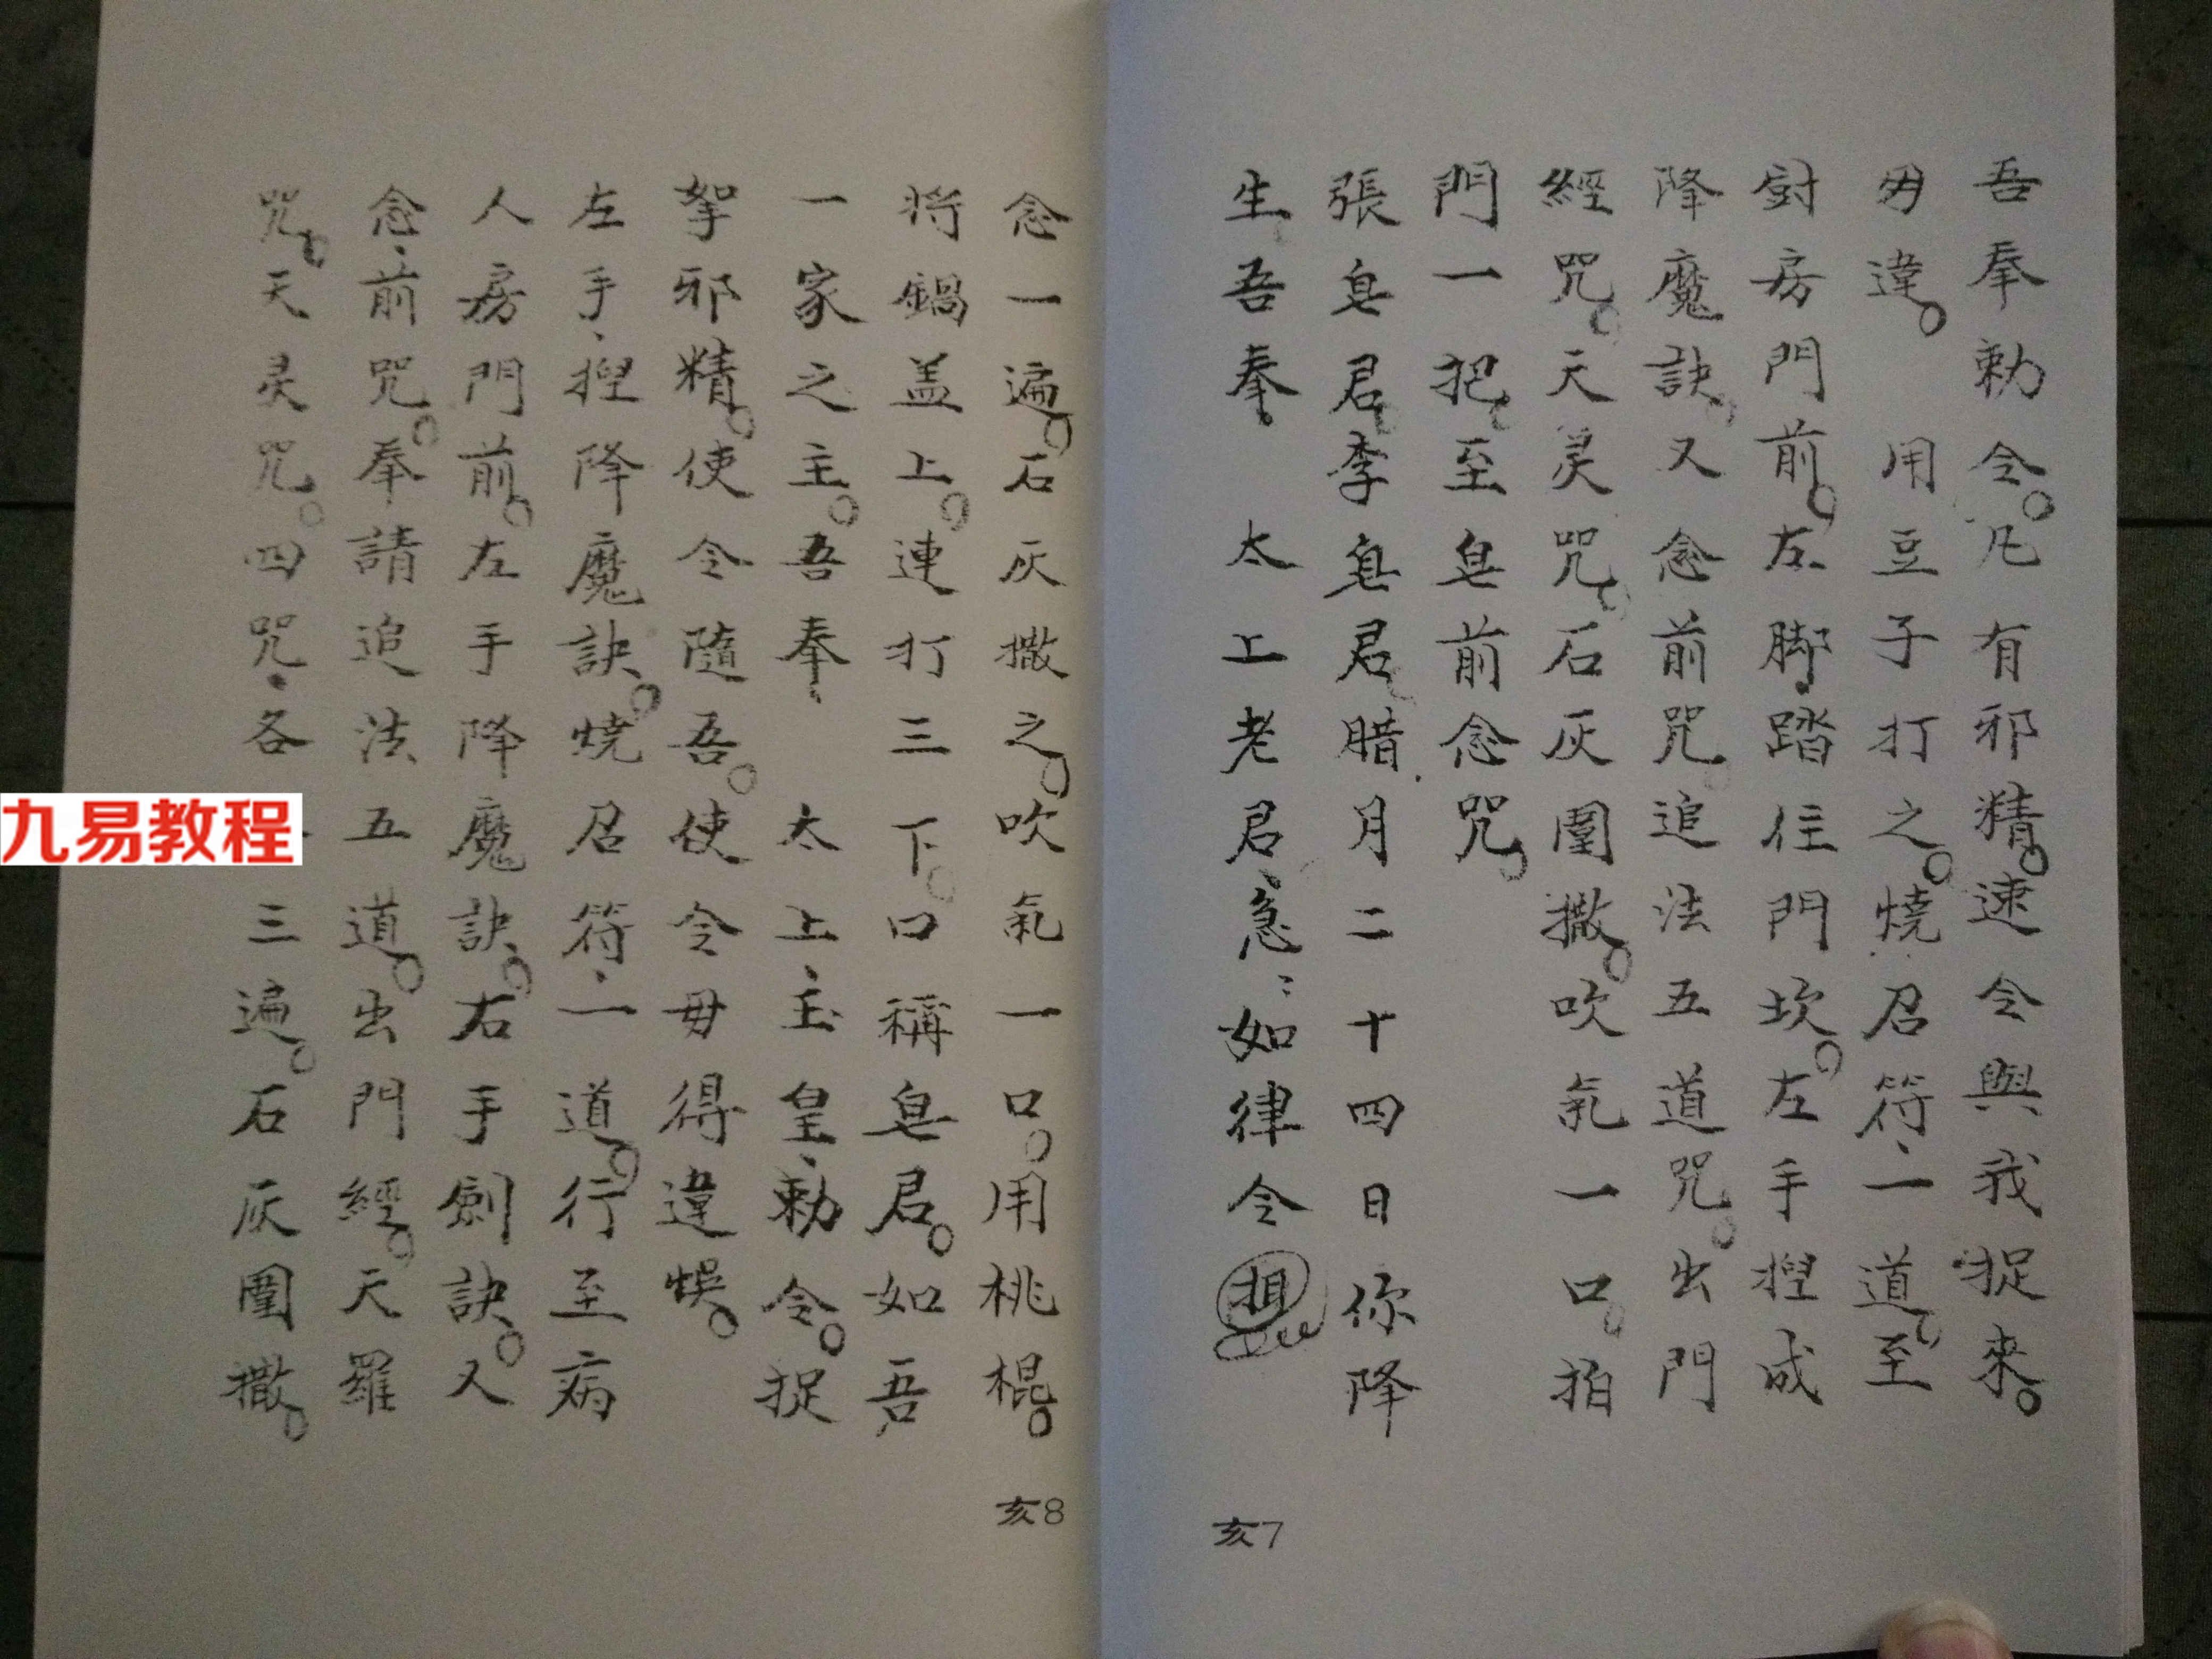 吾奉勅令。凡有邪精。速令與我捉來。
毋違。 用豆子打之。燒召符、一道。至
厨房門前。左脚踏住門坎。左手揑成
降魔訣。又念前咒。追法五道咒。出門
經咒。天灵咒。石灰圍撒。吹氣一口。拍
門一把。至皂前念咒。
張皂君。李皂君。腊月二十四日你降
生吾奉。 太上老君、急:如律令
亥7
念一遍。石灰撒之。吹氣一口。用桃棍。
将鍋盖上。連打三下。口稱皂君。如吾
一家之主。吾奉、 太上、主皇、勅令。捉
拏邪精。使令隨吾。使令毋得違悮。
左手、揑降魔訣。燒召符、一道。行至病
人房門前。左手降魔訣。右手劍訣。又
念、前咒。奉請追法五道。出門經。天羅
咒。天灵咒。四咒、各 三遍。石灰圍撒。
亥8
九易教程